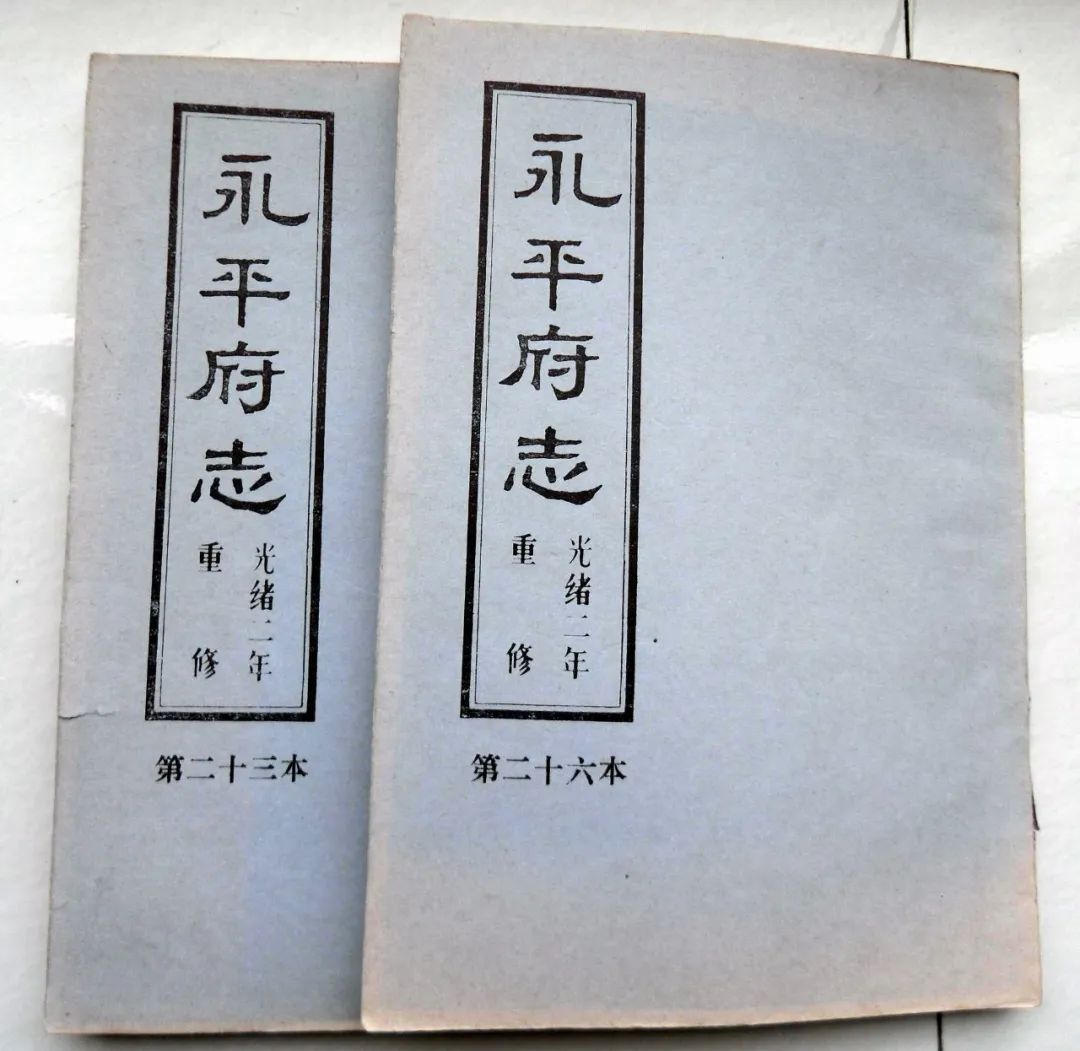 永平府志
光绪二年
重修
第二十三本
永平府志
光绪二年
重修
第二十六本